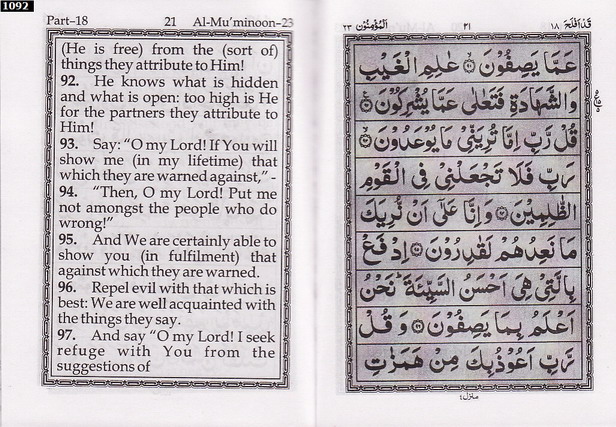 1092
Part-18 21 Al-Mu'minoon-23
(He is free) from the (sort of)
things they attribute to Him!
92. He knows what is hidden
and what is open: too high is He
for the partners they attribute to
Him!
93. Say: "O my Lord! If You will
show me (in my lifetime) that
which they are warned against," -
94. "Then, O my Lord! Put me
not amongst the people who do
wrong!"
95. And We are certainly able to
show you (in fulfilment) that
against which they are warned.
96. Repel evil with that which is
best: We are well acquainted with
the things they say.
97. And say "O my Lord! I seek
refuge with You from the
suggestions of
قَدْ اَفْلَحَ ١٨ ٢١ اَلْمُؤْمِنُوْن ٢٣
عَمَّا يَصِفُوْنَ ۝٩١ عٰلِمِ الْغَيْبِ
وَالشَّهَادَةِ فَتَعٰلٰى عَمَّا يُشْرِكُوْنَ ۝٩٢
قُلْ رَّبِّ اِمَّا تُرِيَنِّيْ مَا يُوْعَدُوْنَ ۝٩٣
رَبِّ فَلَا تَجْعَلْنِيْ فِي الْقَوْمِ
الظّٰلِمِيْنَ ۝٩٤ وَاِنَّا عَلٰٓى اَنْ نُّرِيَكَ
مَا نَعِدُهُمْ لَقٰدِرُوْنَ ۝٩٥ اِدْفَعْ
بِالَّتِيْ هِيَ اَحْسَنُ السَّيِّئَةَ ۭ نَحْنُ
اَعْلَمُ بِمَا يَصِفُوْنَ ۝٩٦ وَقُلْ
رَّبِّ اَعُوْذُ بِكَ مِنْ هَمَزٰتِ
منزل ٤